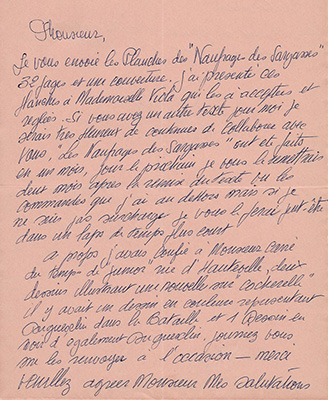 Monsieur,
Je vous envoie les Planches des "Naufragés des Sargasses"
32 pages et une couverture. j'ai presenté ces
planches à Mademoiselle qui les a acceptées et
reglées. Si vous avez un autre texte pour moi je
serais très heureux de continuer à collaborer avec
vous, "Les Naufragés des Sargasses" ont été faits
en un mois, pour le prochain je vous le remettrais
deux mois après la remise du texte vu les
commandes que j'ai au dehors mais si je
ne suis pas surchargé je vous le ferai peut-être
dans un laps de temps plus court
a propos j'avais confié à Monsieur
du temps de "Junior" rue d'Hauteville, deux
dessins illustrant une nouvelle sur
il y avait un dessin en couleurs representant
Duguesclin dans la Bataille et 1 Dessin en
noir également Duguesclin, pourriez vous
me les renvoyer à l'occasion — merci
Veuillez agreer Monsieur Mes salutations